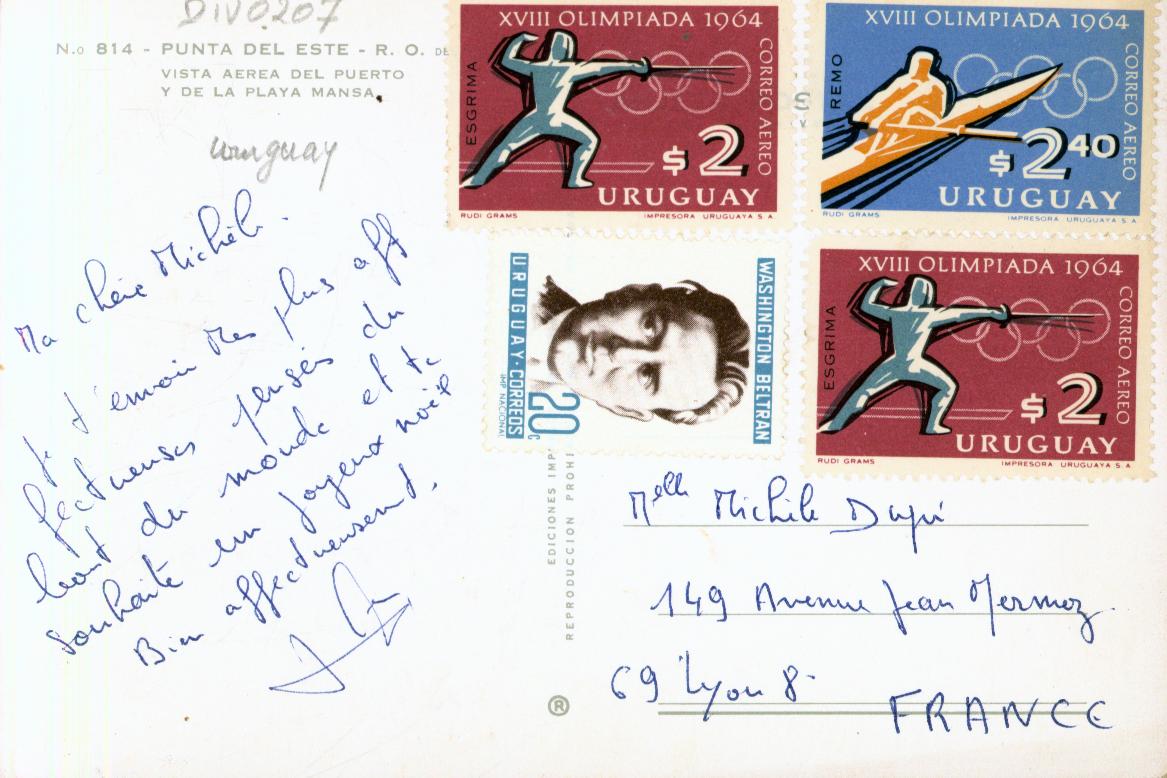 DIV0207
N.o 814 - PUNTA DEL ESTE - R. O. DE
VISTA AEREA DEL PUERTO
Y DE LA PLAYA MANSA
Uruguay
Ma chère Michèle.
Je t'envoie mes plus aff
fectueuses pensées du
bout du monde et te
souhaite un joyeux noël
Bien affectueusement.
XVIII OLIMPIADA 1964
ESGRIMA
CORREO AEREO
$ 2
URUGUAY
RUDI GRAMS
IMPRESORA URUGUAYA S. A.
XVIII OLIMPIADA 1964
REMO
CORREO AEREO
$ 2 40
URUGUAY
RUDI GRAMS
IMPRESORA URUGUAYA S. A
URUGUAY·CORREOS
IMP NACIONAL
20c
WASHINGTON BELTRAN
XVIII OLIMPIADA 1964
ESGRIMA
CORREO AEREO
$ 2
URUGUAY
RUDI GRAMS
IMPRESORA URUGUAYA S. A
EDICIONES IMP
REPRODUCCION PROHI
®
Melle Michèle
149 Avenue Jean Mermoz
69 Lyon 8
FRANCE